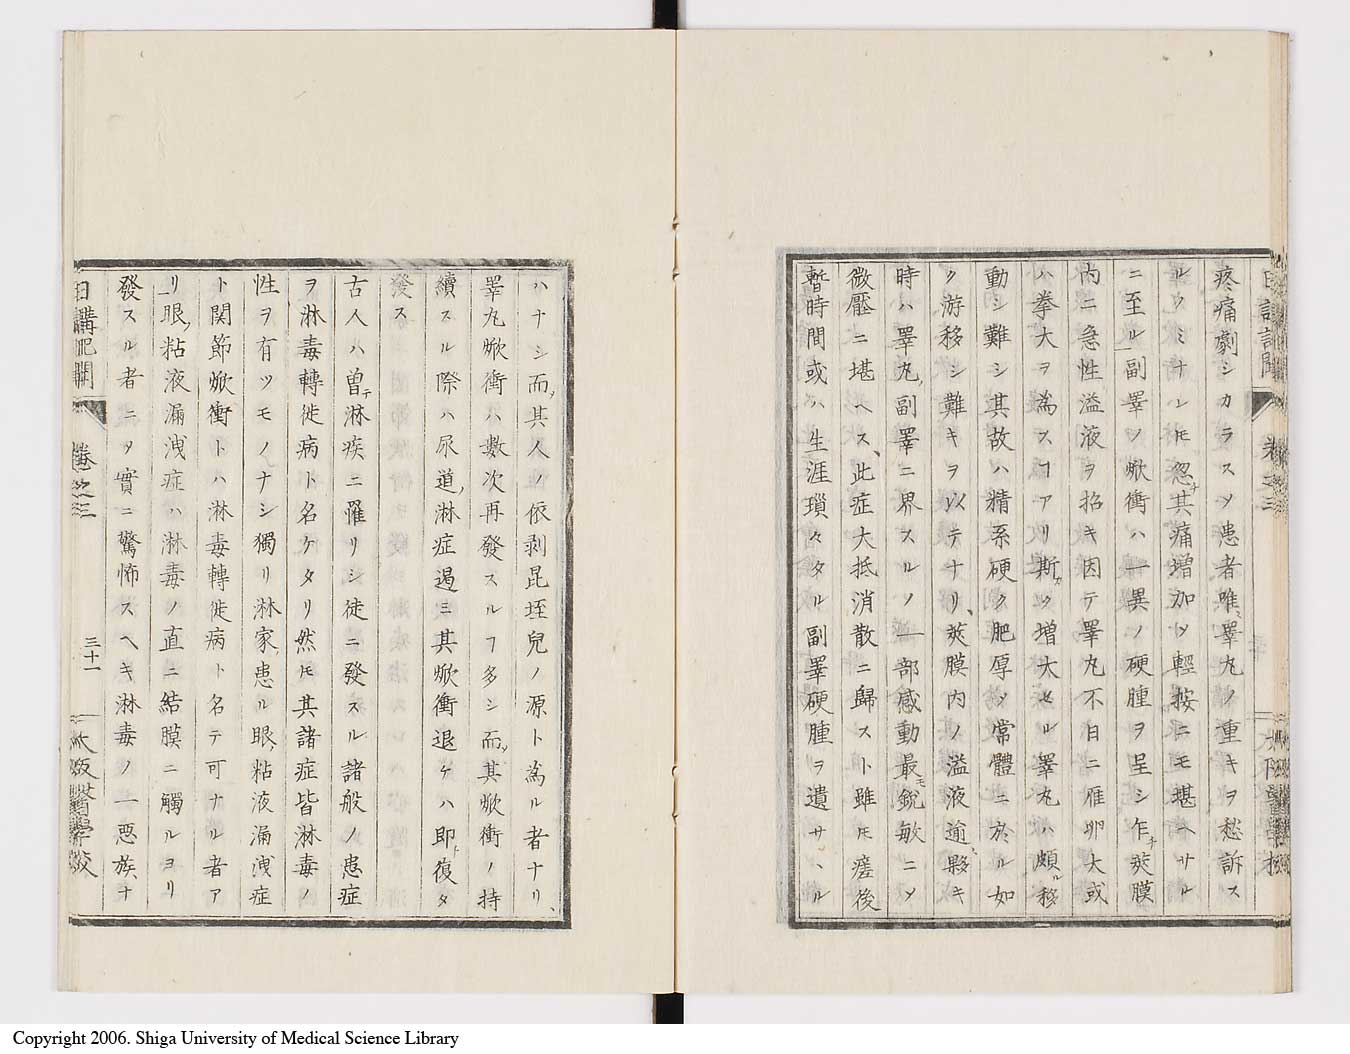 疼痛劇シカラスソ患者唯睪丸ノ重キヲ愁訴ス
ルノミナレ𪜈忽其痛増加シ輕按ニモ堪ヘサル
ニ至ル副睪ノ焮衝ハ一異ノ硬腫ヲ呈シ乍莢膜
内ニ急性溢液ヲ招キ因テ睪丸不日ニ雁卵大或
ハ拳大ヲ為スヿアリ斯ク増大セル睪丸ハ頗ル移
動シ難シ其故ハ精系硬ク肥厚ソ常體ニ於ル如
ク游移シ難キヲ以テナリ、莢膜内ノ溢液逾夥キ
時ハ睪丸副睪ニ界スルノ一部感動最モ銳敏ニメ
微壓ニ堪ヘス、此症大抵消散ニ歸スト雖𪜈瘥後
暫時間或ハ生涯瑣々タル副睪硬腫ヲ遺サヽル
ハナシ而其人ノ依剥昆垤兒ノ源ト為ル者ナリ、
睪丸焮衝ハ數次再發スルヿ多シ而其焮衝ノ持
續スル際ハ尿道淋症過ミ其焮衝退ケハ即復タ
發ス
古人ハ曽テ淋疾ニ罹リシ徒ニ發スル諸般ノ患症
ヲ淋毒轉徙病ト名ケタリ然𪜈其諸症皆淋毒ノ
性ヲ有ツモノナシ獨リ淋家患ル眼粘液漏洩症
ト関節焮衝トハ淋毒轉徙病ト名テ可ナル者ア
リ眼粘液漏洩症ハ淋毒ノ直ニ結膜ニ觸ルヨリ
發スル者ニメ實ニ驚怖スヘキ淋毒ノ一惡族ナ
日講記聞 卷之三 三十一 大阪醫學校